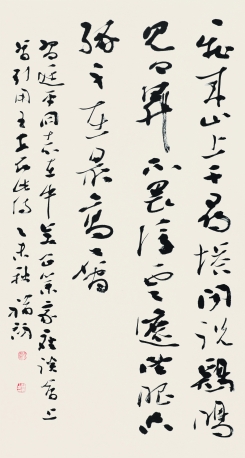 飞来山上千寻塔闻说鸡鸣
见日升不畏浮云遮望眼只
缘身在最高层
习近平同志在中央政策座谈会上
曾引用王安石此诗乙未秋